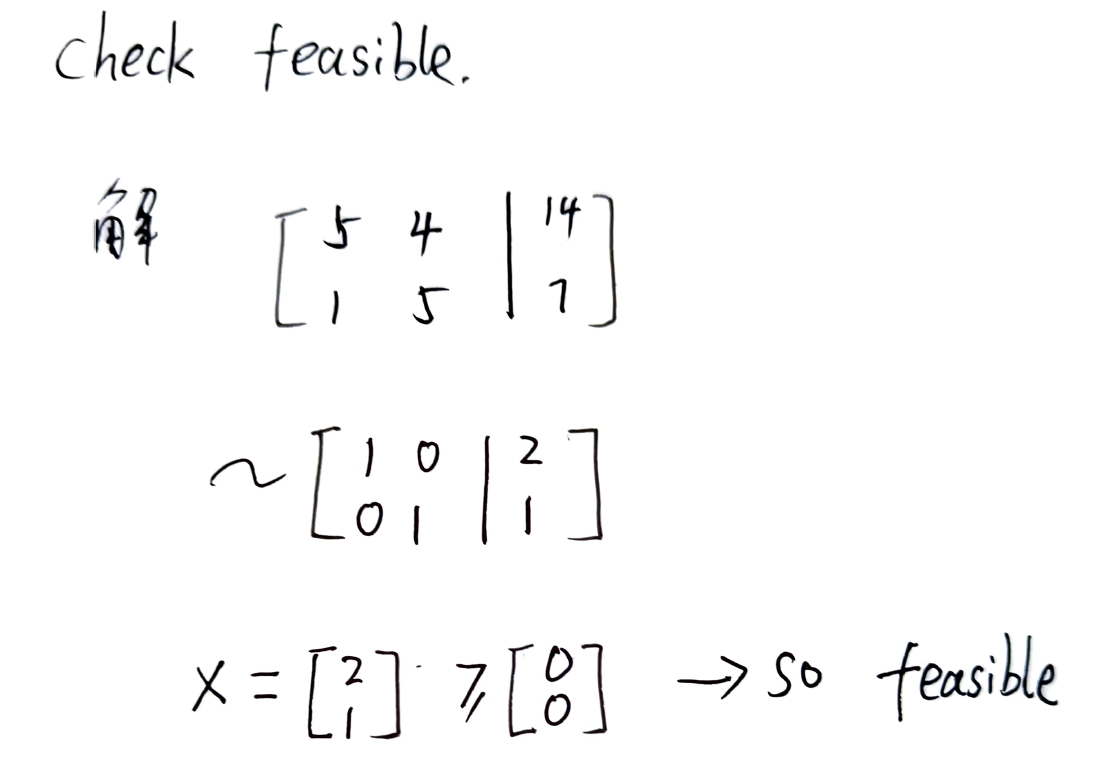 check feasible.
解 [ 5 4 | 14 ]
[ 1 5 | 7 ]
~ [ 1 0 | 2 ]
[ 0 1 | 1 ]
X = [ 2 ] ≥ [ 0 ] → so feasible
[ 1 ] [ 0 ]